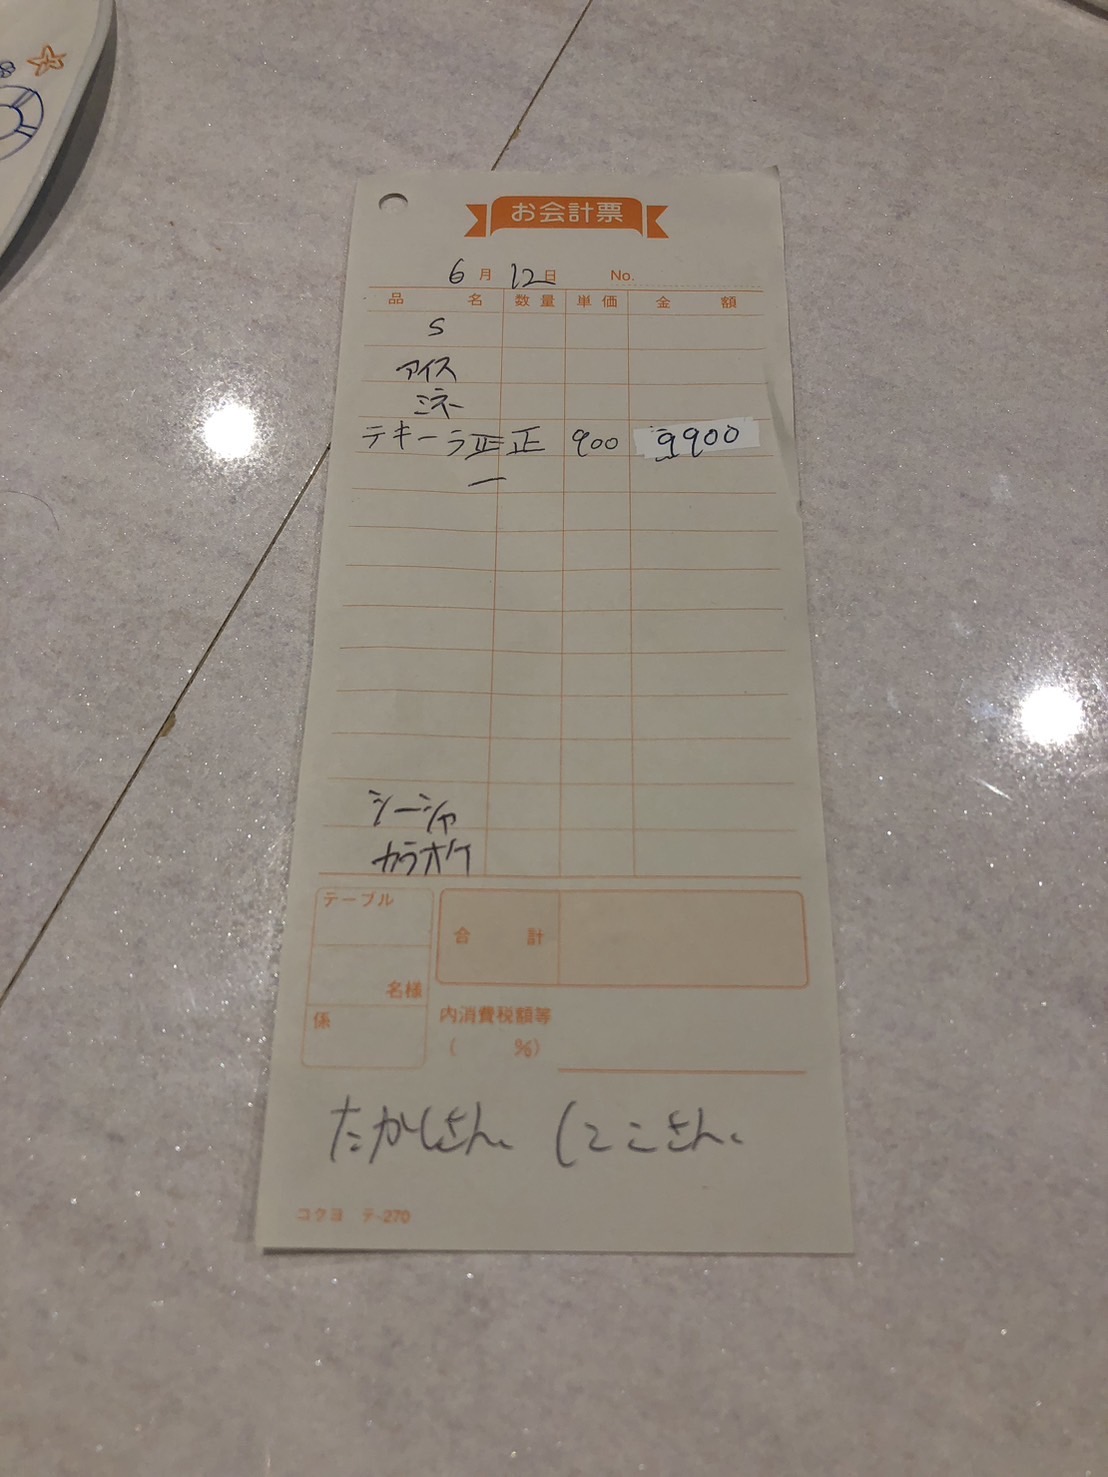 お会計票
6月 12日 No.
品名 数量 単価 金額
S
アイス
ミネー
テキーラ 正正 900 9900
一
シーシャ
カラオケ
テーブル
合計
名様
係
内消費税額等
( %)
たかしさん、 にこさん、
コクヨ テ-270